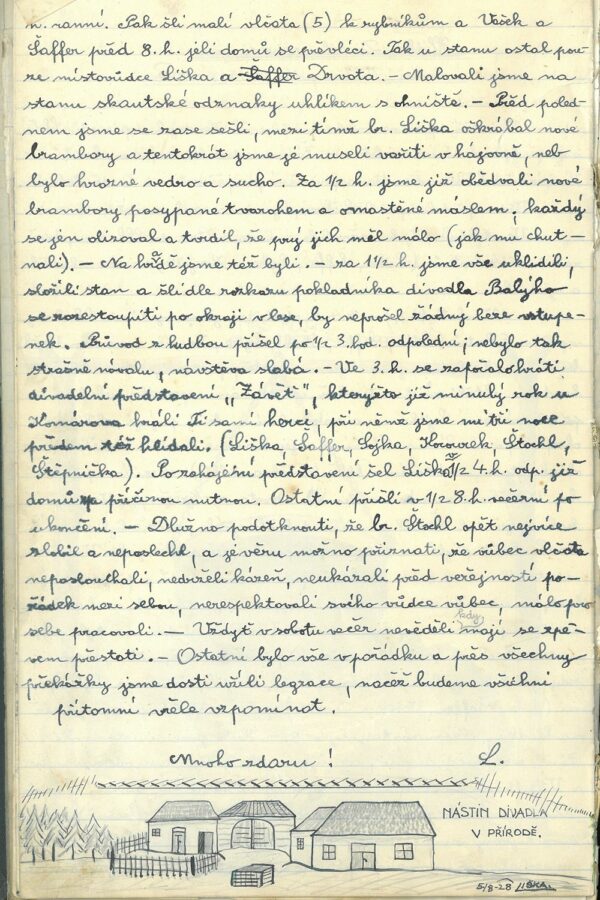 n. ranní. Pak šli malí vlčata (5) k rybníkům a Vašek a
Šaffer před 8. h. jeli domů se převléci. Tak u stanu ostal pou-
ze místovůdce Liška a Šaffer Drvota. – Malovali jsme na
stanu skautské odznaky uhlíkem s ohniště. – Před poled-
nem jsme se zase sešli, mezi tímž br. Liška oškrábal nové
brambory a tentokrát jsme je museli vařiti v hájovně, neb
bylo hrozné vedro a sucho. Za 1/2 h. jsme již obědvali nové
brambory posypané tvarohem a omastěné máslem; každý
se jen olizoval a tvrdil, že prý jich měl málo (jak mu chut-
nali). – Na hůdě jsme též byli. – za 1 1/2 h. jsme vše uklidili,
složili stan a šli dle rozkazu pokladníka divadla Balýho
se rozestoupiti po okraji v lese, by neprošel žádný beze vstupe-
nek. Průvod z hudbou přišel po 1/2 3. hod. odpolední; nebylo tak
strašně návalu, návštěva slabá. – Ve 3. h. se započalo hráti
divadelní představení „Závět", kterýžto již minulý rok u
Komárova hráli Ti samí herci, při němž jsme mi tři noce
předem též hlídali. (Liška, Šaffer, Sojka, Kovorek, Štochl,
Štěpnička). Po zahájení představení šel Liška v 1/2 4. h. odp. již
domů za příčinou nutnou. Ostatní přišli v 1/2 8. h. večerní po
ukončení. – Dlužno podotknouti, že br. Štochl opět nejvíce
zlobil a neposlechl, a je věru možno přiznati, že vůbec vlčata
neposlouchali, nedrželi kázeň, neukázali před veřejností po-
řádek mezi sebou, nerespektovali svého vůdce vůbec, málo pro
sebe pracovali. – Vždyť v sobotu večer nevěděli kdy mají se zpě-
vem přestati. – Ostatní bylo vše v pořádku a přes všechny
překážky jsme dosti užili legrace, načež budeme všichni
přítomní vřele vzpomínat.
Mnoho zdaru! L.
NÁSTIN DIVADLA
V PŘÍRODĚ.
5/8-28 LIŠKA.